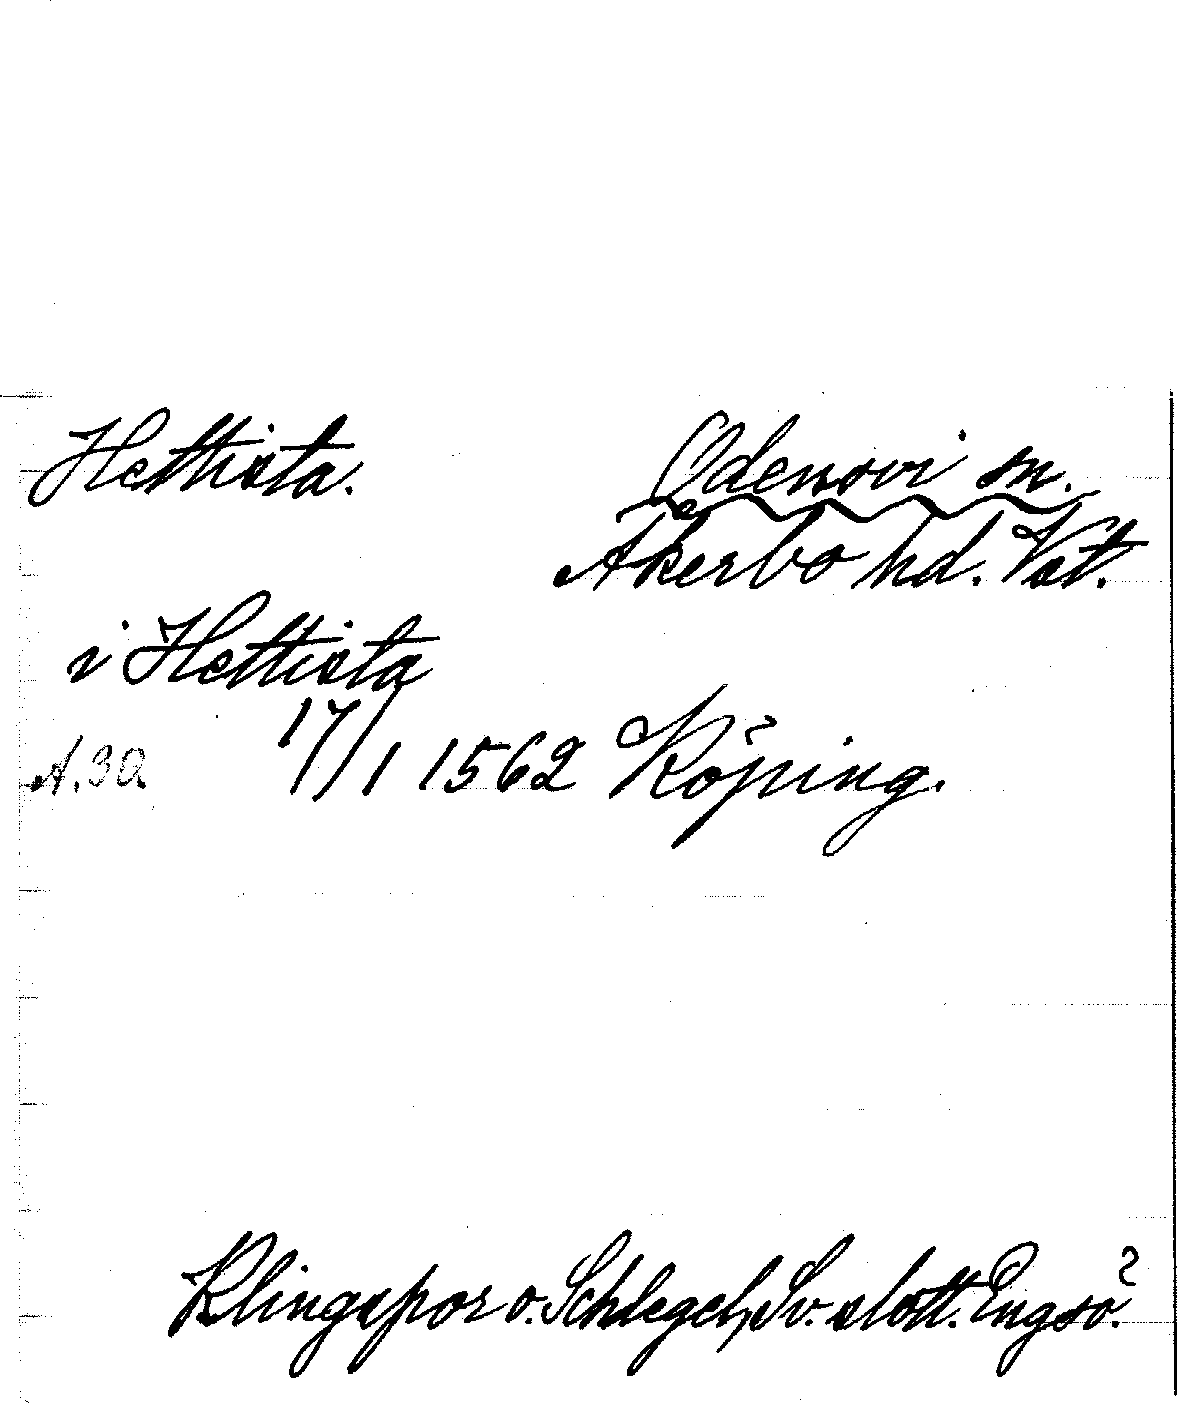 Hettista. Odensvi sn.
Åkerbo hd. Vst.
i Hettista
A.30. 17/1 1562 Köping.
Klingspor o. Schlegel, Sv. slott. Engsö.